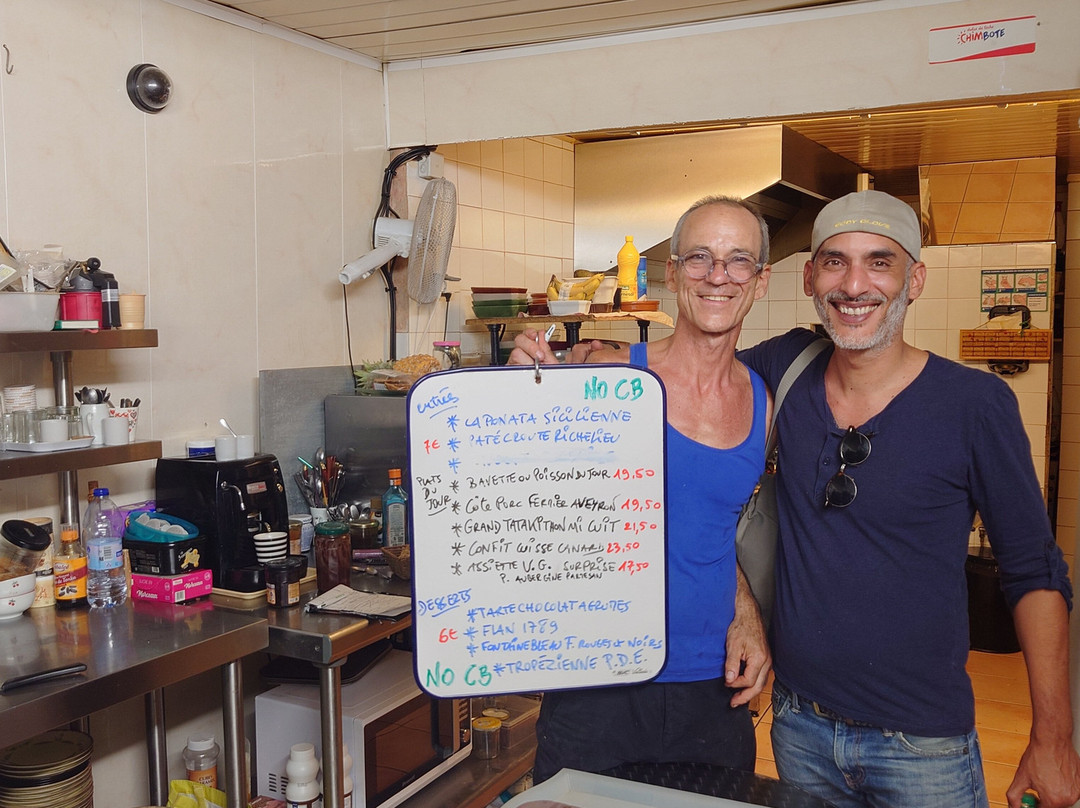 CHIMBOTE
NO CB
entrées
* CAPONATA SICILIENNE
7€ * PATÉ CROUTE RICHELIEU
*
PLATS DU JOUR
* BAVETTE OU POISSON DU JOUR 19,50
* CÔTE PORC FERMIER AVEYRON 19,50
* GRAND TATAKI THON MI CUIT 21,50
* CONFIT CUISSE CANARD 23,50
* ASSIETTE V.G. SURPRISE 17,50
P. AUBERGINE PARMESAN
DESSERTS
* TARTE CHOCOLAT AGRUMES
6€ * FLAN 1789
* FONTAINEBLEAU F. ROUGES & NOIRS
* TROPÉZIENNE P.D.E.
NO CB